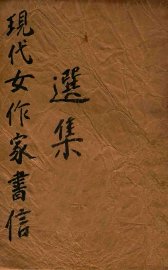 現代女作家書信
選集